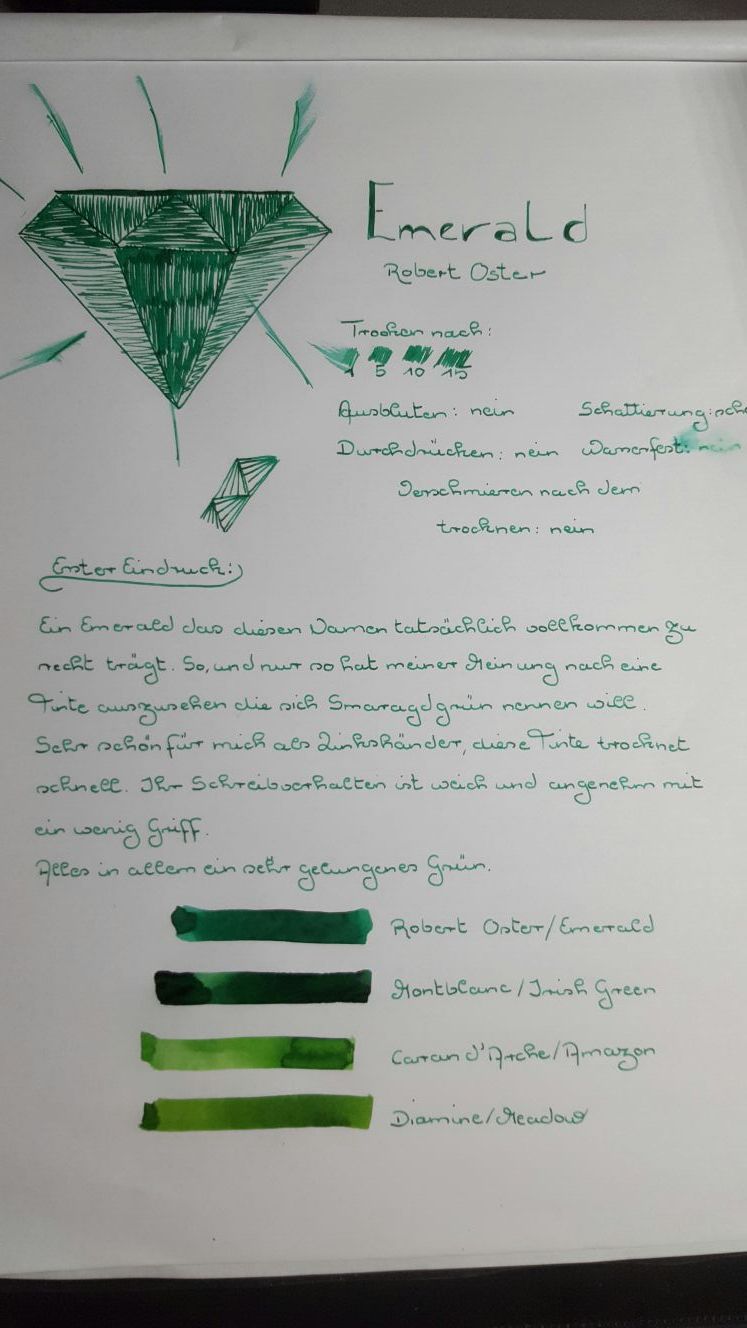 Emerald
Robert Oster
Trocken nach:
1 5 10 15
Ausbluten: nein Schattierung:
Durchdrücken: nein Wasserfest: nein
Verschmieren nach dem
trocknen: nein
Erster Eindruck:
Ein Emerald das diesen Namen tatsächlich vollkommen zu
recht trägt. So, und nur so hat meiner Meinung nach eine
Tinte auszusehen die sich Smaragdgrün nennen will.
Sehr schön für mich als Linkshänder, diese Tinte trocknet
schnell. Ihr Schreibverhalten ist weich und angenehm mit
ein wenig Griff.
Alles in allem ein sehr gelungenes Grün.
Robert Oster/Emerald
Montblanc/Irish Green
Caran d'Arche/Amazon
Diamine/Meadow